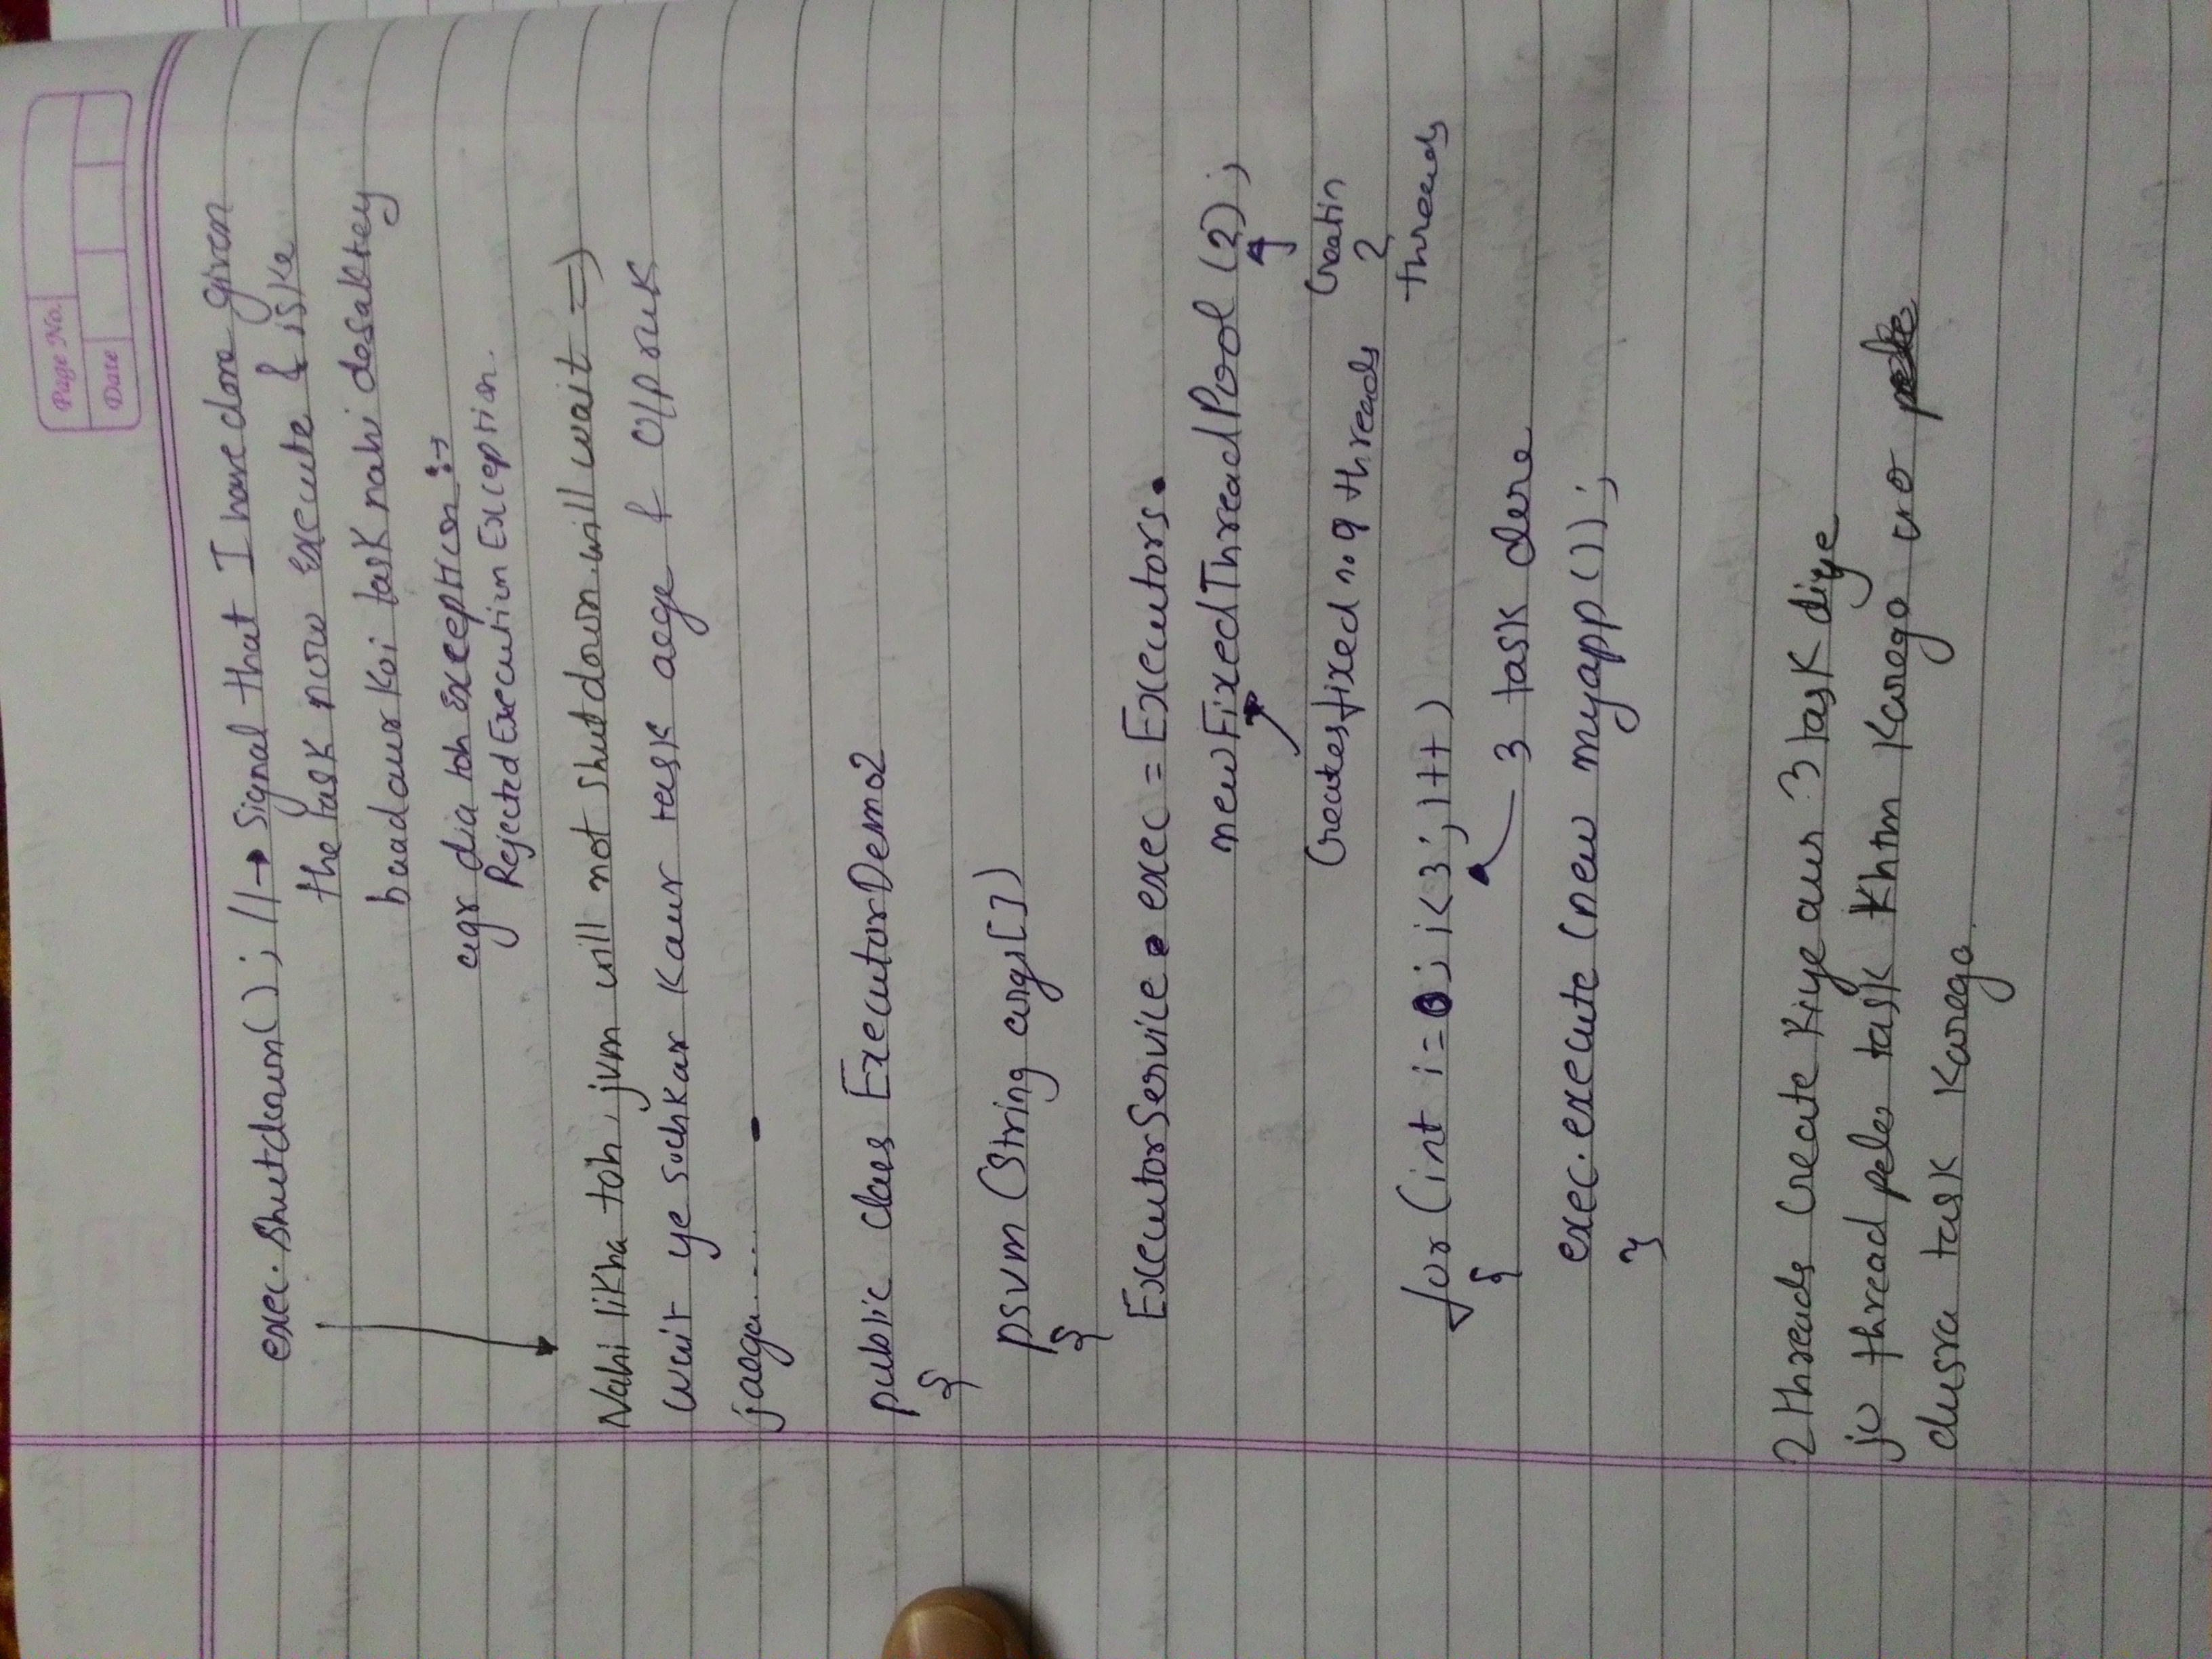 Page No.
Date
exec. Shutdown(); //→ Signal that I have done given
the task now execute & iske
baad aur koi task nahi desaktey
agr dia toh Exception :→
RejectedExecution Exception.
Nahi likha toh, jvm will not shutdown. will wait =>
wait ye sochkar kaur task aega & O/P ruk
jaega.....
public class ExecutorDemo2
{
psvm (String args[])
{
ExecutorService exec = Executors.
newFixedThreadPool (2);
Creates fixed no of threads
Creatin
2
threads
for (int i=0; i<3; i++)
{
3 task dere
exec.execute (new myapp());
}
2 threads Create kiye aur 3 task diye
jo thread pele task khtm karega wo
dusra task karega.